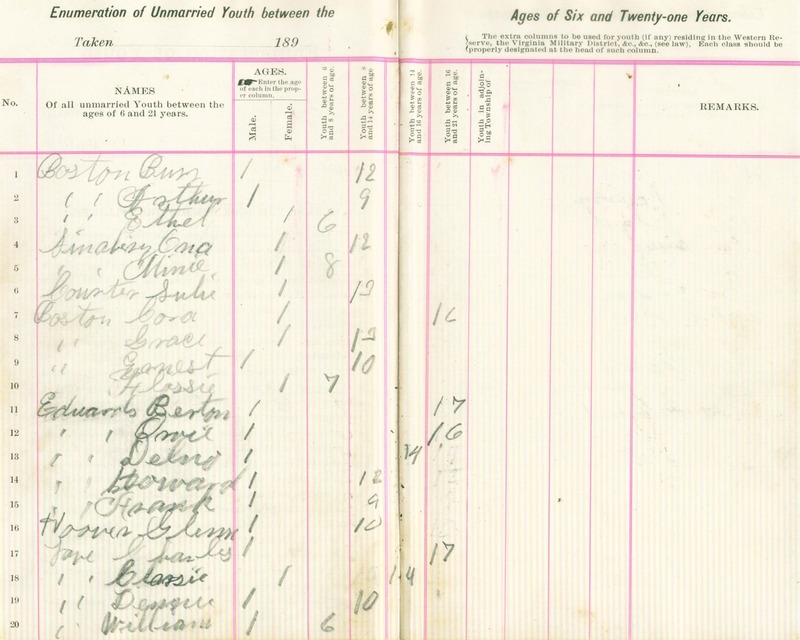 Enumeration of Unmarried Youth between the Ages of Six and Twenty-one Years.
Taken 189
The extra columns to be used for youth (if any) residing in the Western Re-
serve, the Virginia Military District, &c., &c., (see law). Each class should be
properly designated at the head of such column.
No.
NAMES
Of all unmarried Youth between the
ages of 6 and 21 years.
AGES.
Enter the age
of each in the prop-
er column.
Male.
Female.
Youth between 6
and 8 years of age.
Youth between 8
and 14 years of age.
Youth between 14
and 16 years of age.
Youth between 16
and 21 years of age.
Youth in adjoin-
ing Township of
REMARKS.
1 Boston Burr 1 12
2 " Arthur 1 9
3 " Ethel 1 6
4 Ona 1 12
5 " Minie 1 8
6 1 13
7 Boston Cora 1 16
8 " Grace 1 13
9 " Earnest 1 10
10 Flossie 1 7
11 Edwards Berton 1 17
12 " " Orvil 1 16
13 " " Delno 1 14
14 " " Howard 1 12
15 " " Frank 1 9
16 Hoover Glenn 1 10
17 Charles 1 17
18 " " Classie 1 14
19 " " 1 10
20 " William 1 6